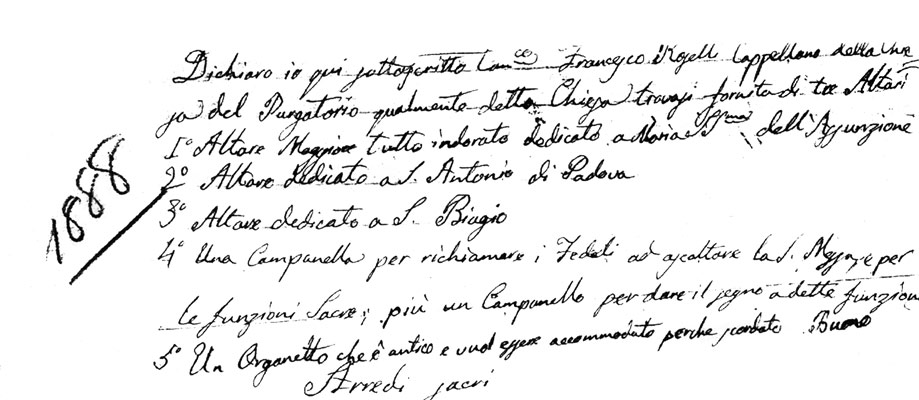 Dichiaro io qui sottoscritto Can.ce Francesco Roselli Cappellano della Chie
sa del Purgatorio qualmente detta Chiesa trovasi fornita di tre Altari
1° Altare Maggiore tutto indorato dedicato a Maria SSma dell'Assunzione
1888
2° Altare dedicato a S. Antonio di Padova
3° Altare dedicato a S. Biagio
4° Una Campanella per richiamare i Fedeli ad ascoltare la S. Messa, e per
le funzioni Sacre; più un Campanello per dare il segno a dette funzion
5° Un Organetto che è antico e vuol essere accommodato perche scordato Buono
Arredi sacri